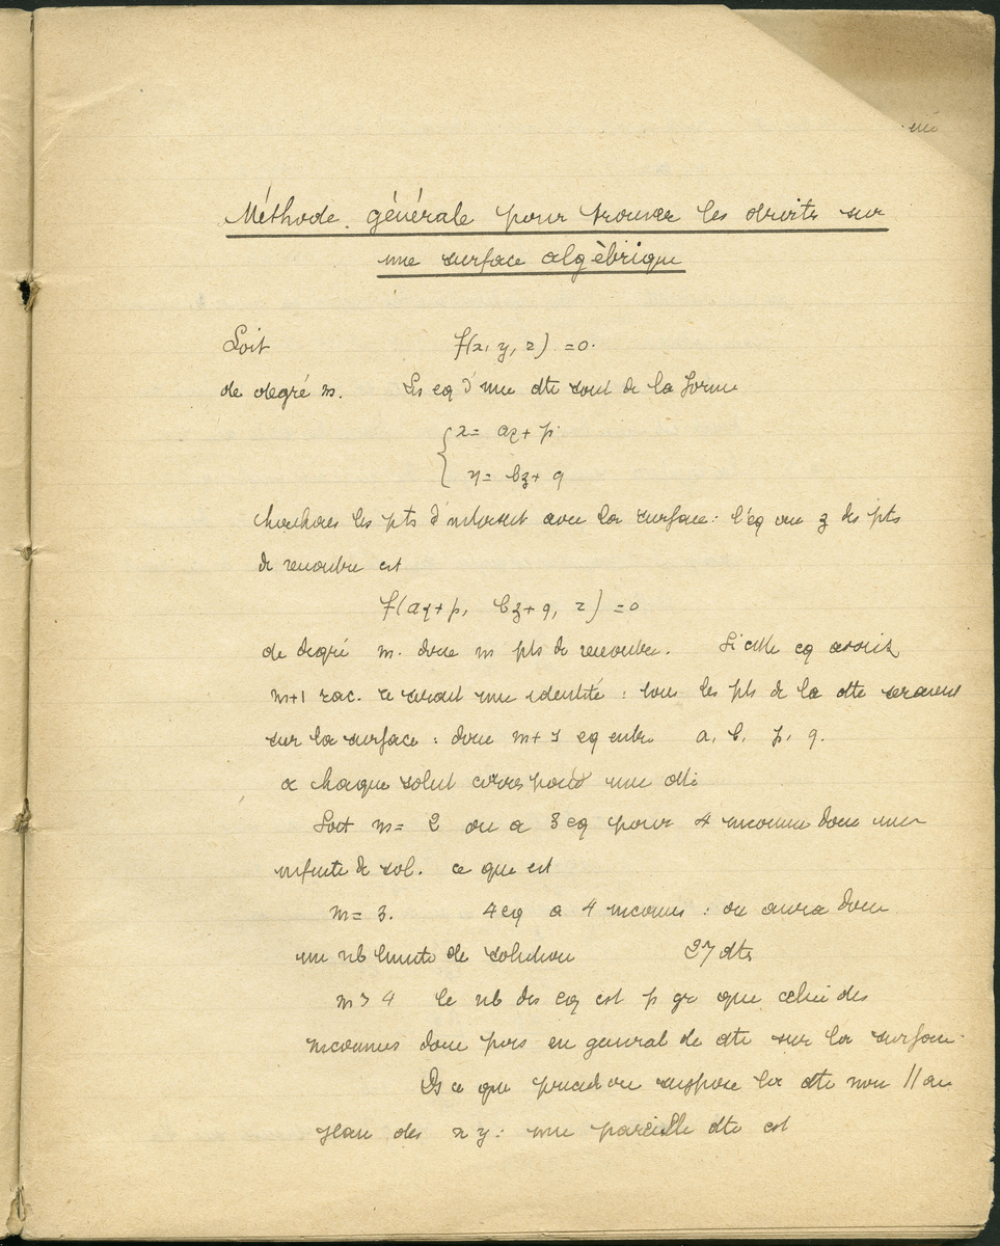 Méthode générale pour trouver les droites sur
une surface algèbrique
Soit f(x, y, z) = 0.
de degré m. Les eq d'une dte sont de la forme
x = az + p
y = bz + q
cherchons les pts d'intersect avec la surface : l'éq aux z des pts
de rencontre est
f(az+p, bz+q, z) = 0
de degré m. donc m pts de rencontre. Si cette eq avait
m+1 rac. ce serait une identité : tous les pts de la dte seraient
sur la surface : donc m+1 eq entre a, b, p, q.
a chaque solut correspond une dte
Soit m = 2 on a 3 eq pour 4 inconnus donc une
infinite de sol. ce que est
m = 3. 4 eq a 4 inconnus : on aura donc
un nb limite de solution 27 dtes
m > 4 le nb des eq est p gr que celui des
inconnues donc pas en general de dte sur la surface.
Ds ce que preced on suppose la dte non // au
plan des xy : une pareille dte est